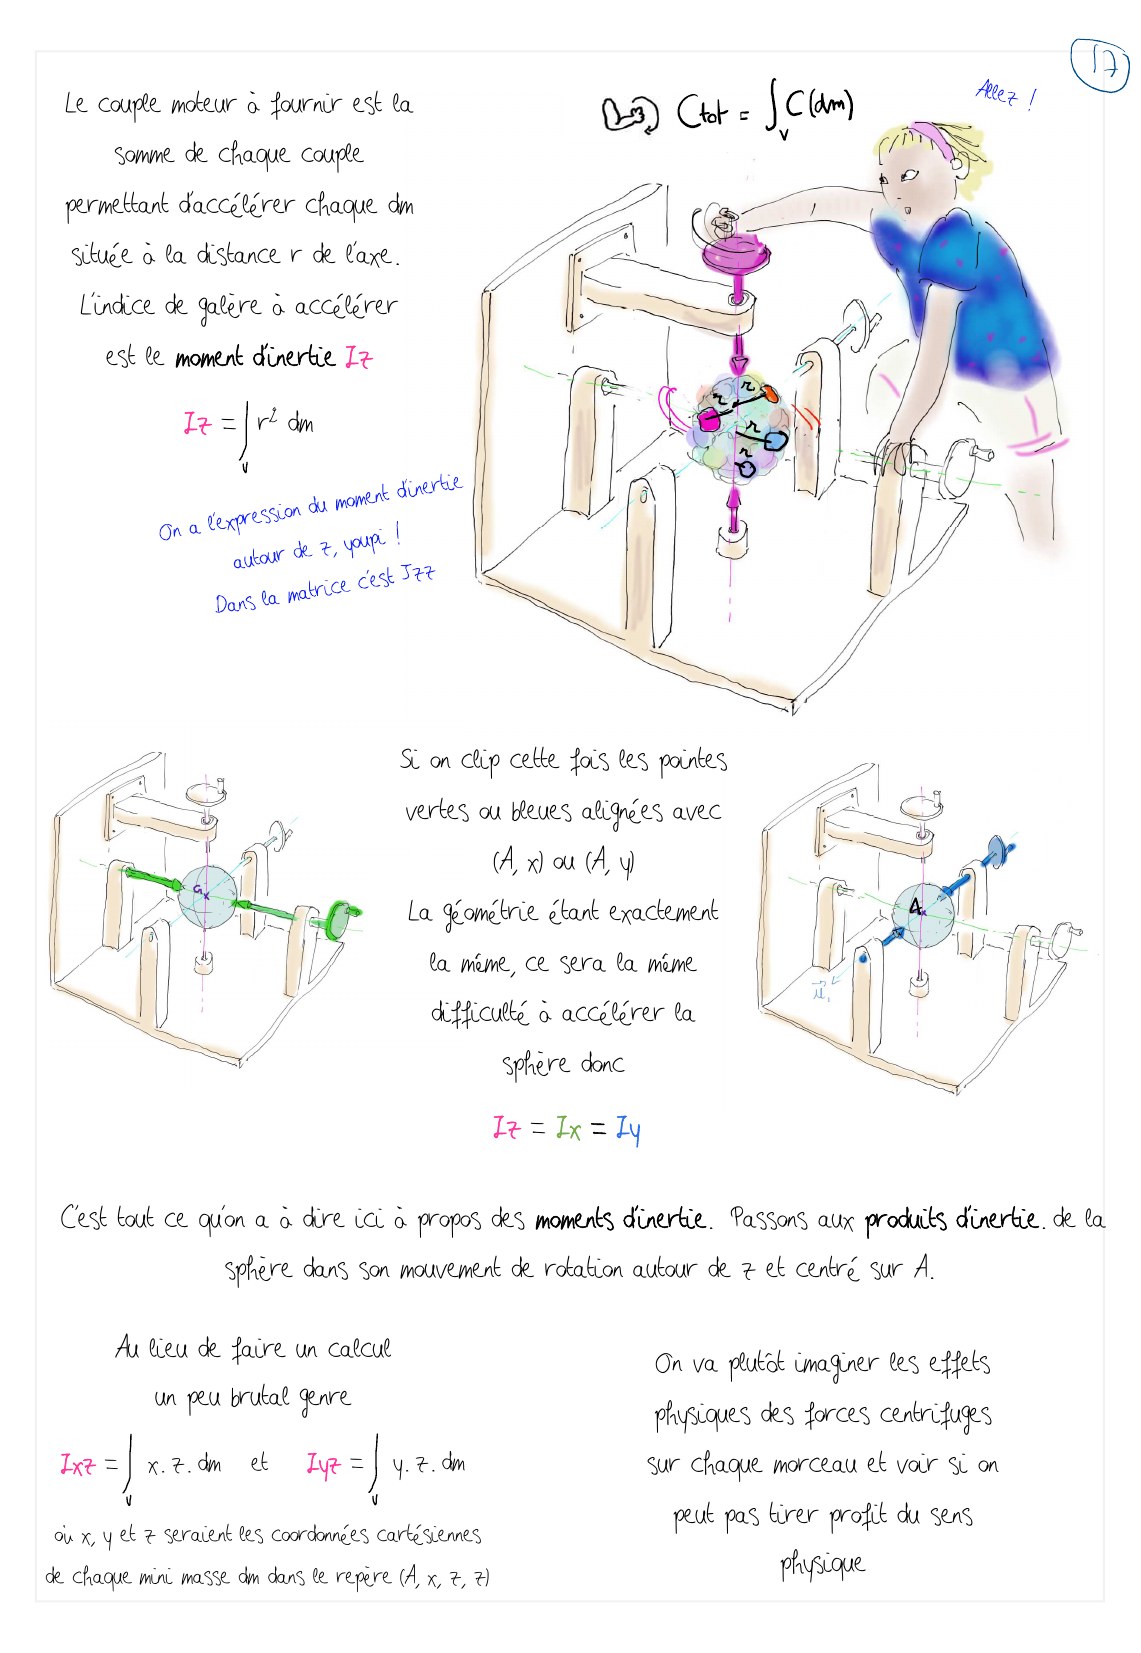 17
Le couple moteur à fournir est la
somme de chaque couple
permettant d'accélérer chaque dm
située à la distance r de l'axe.
L'indice de galère à accélérer
est le moment d'inertie Iz
Iz = ∫v r² dm
On a l'expression du moment d'inertie
autour de z, youpi !
Dans la matrice c'est Izz
Ctot = ∫v C(dm)
Allez !
r
r
r
r
Si on clip cette fois les pointes
vertes ou bleues alignées avec
(A, x) ou (A, y)
La géométrie étant exactement
la même, ce sera la même
difficulté à accélérer la
sphère donc
Iz = Ix = Iy
G
A
C'est tout ce qu'on a à dire ici à propos des moments d'inertie. Passons aux produits d'inertie. de la
sphère dans son mouvement de rotation autour de z et centré sur A.
Au lieu de faire un calcul
un peu brutal genre
Ixz = ∫v x. z. dm et Iyz = ∫v y. z. dm
où x, y et z seraient les coordonnées cartésiennes
de chaque mini masse dm dans le repère (A, x, z, z)
On va plutôt imaginer les effets
physiques des forces centrifuges
sur chaque morceau et voir si on
peut pas tirer profit du sens
physique